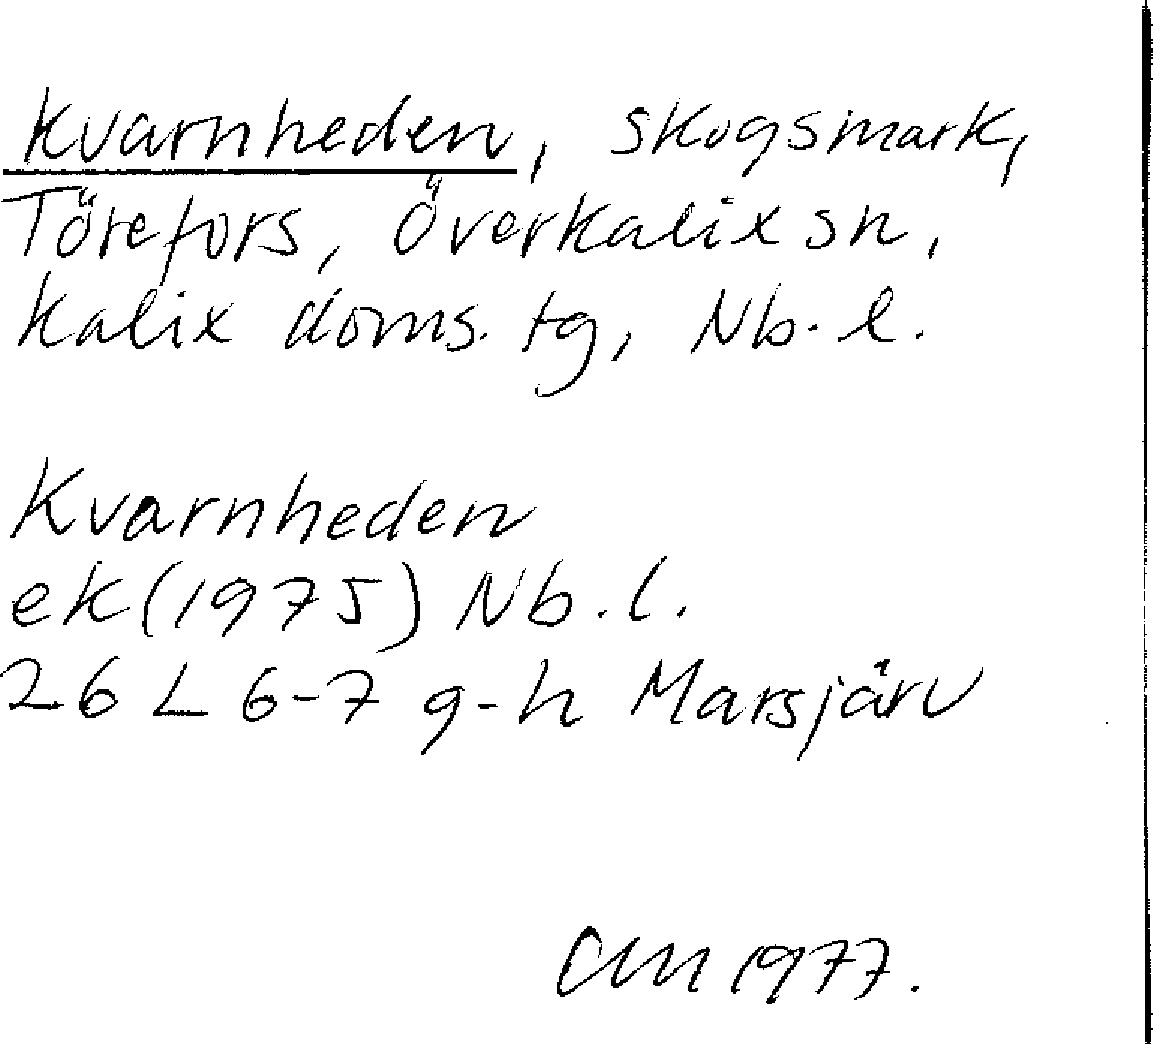 Kvarnheden, skogsmark,
Törefors, Överkalix sn,
Kalix doms. tg, Nb. l.
Kvarnheden
ek (1975) Nb. l.
26 L 6-7 g-h Marsjärv
1977.